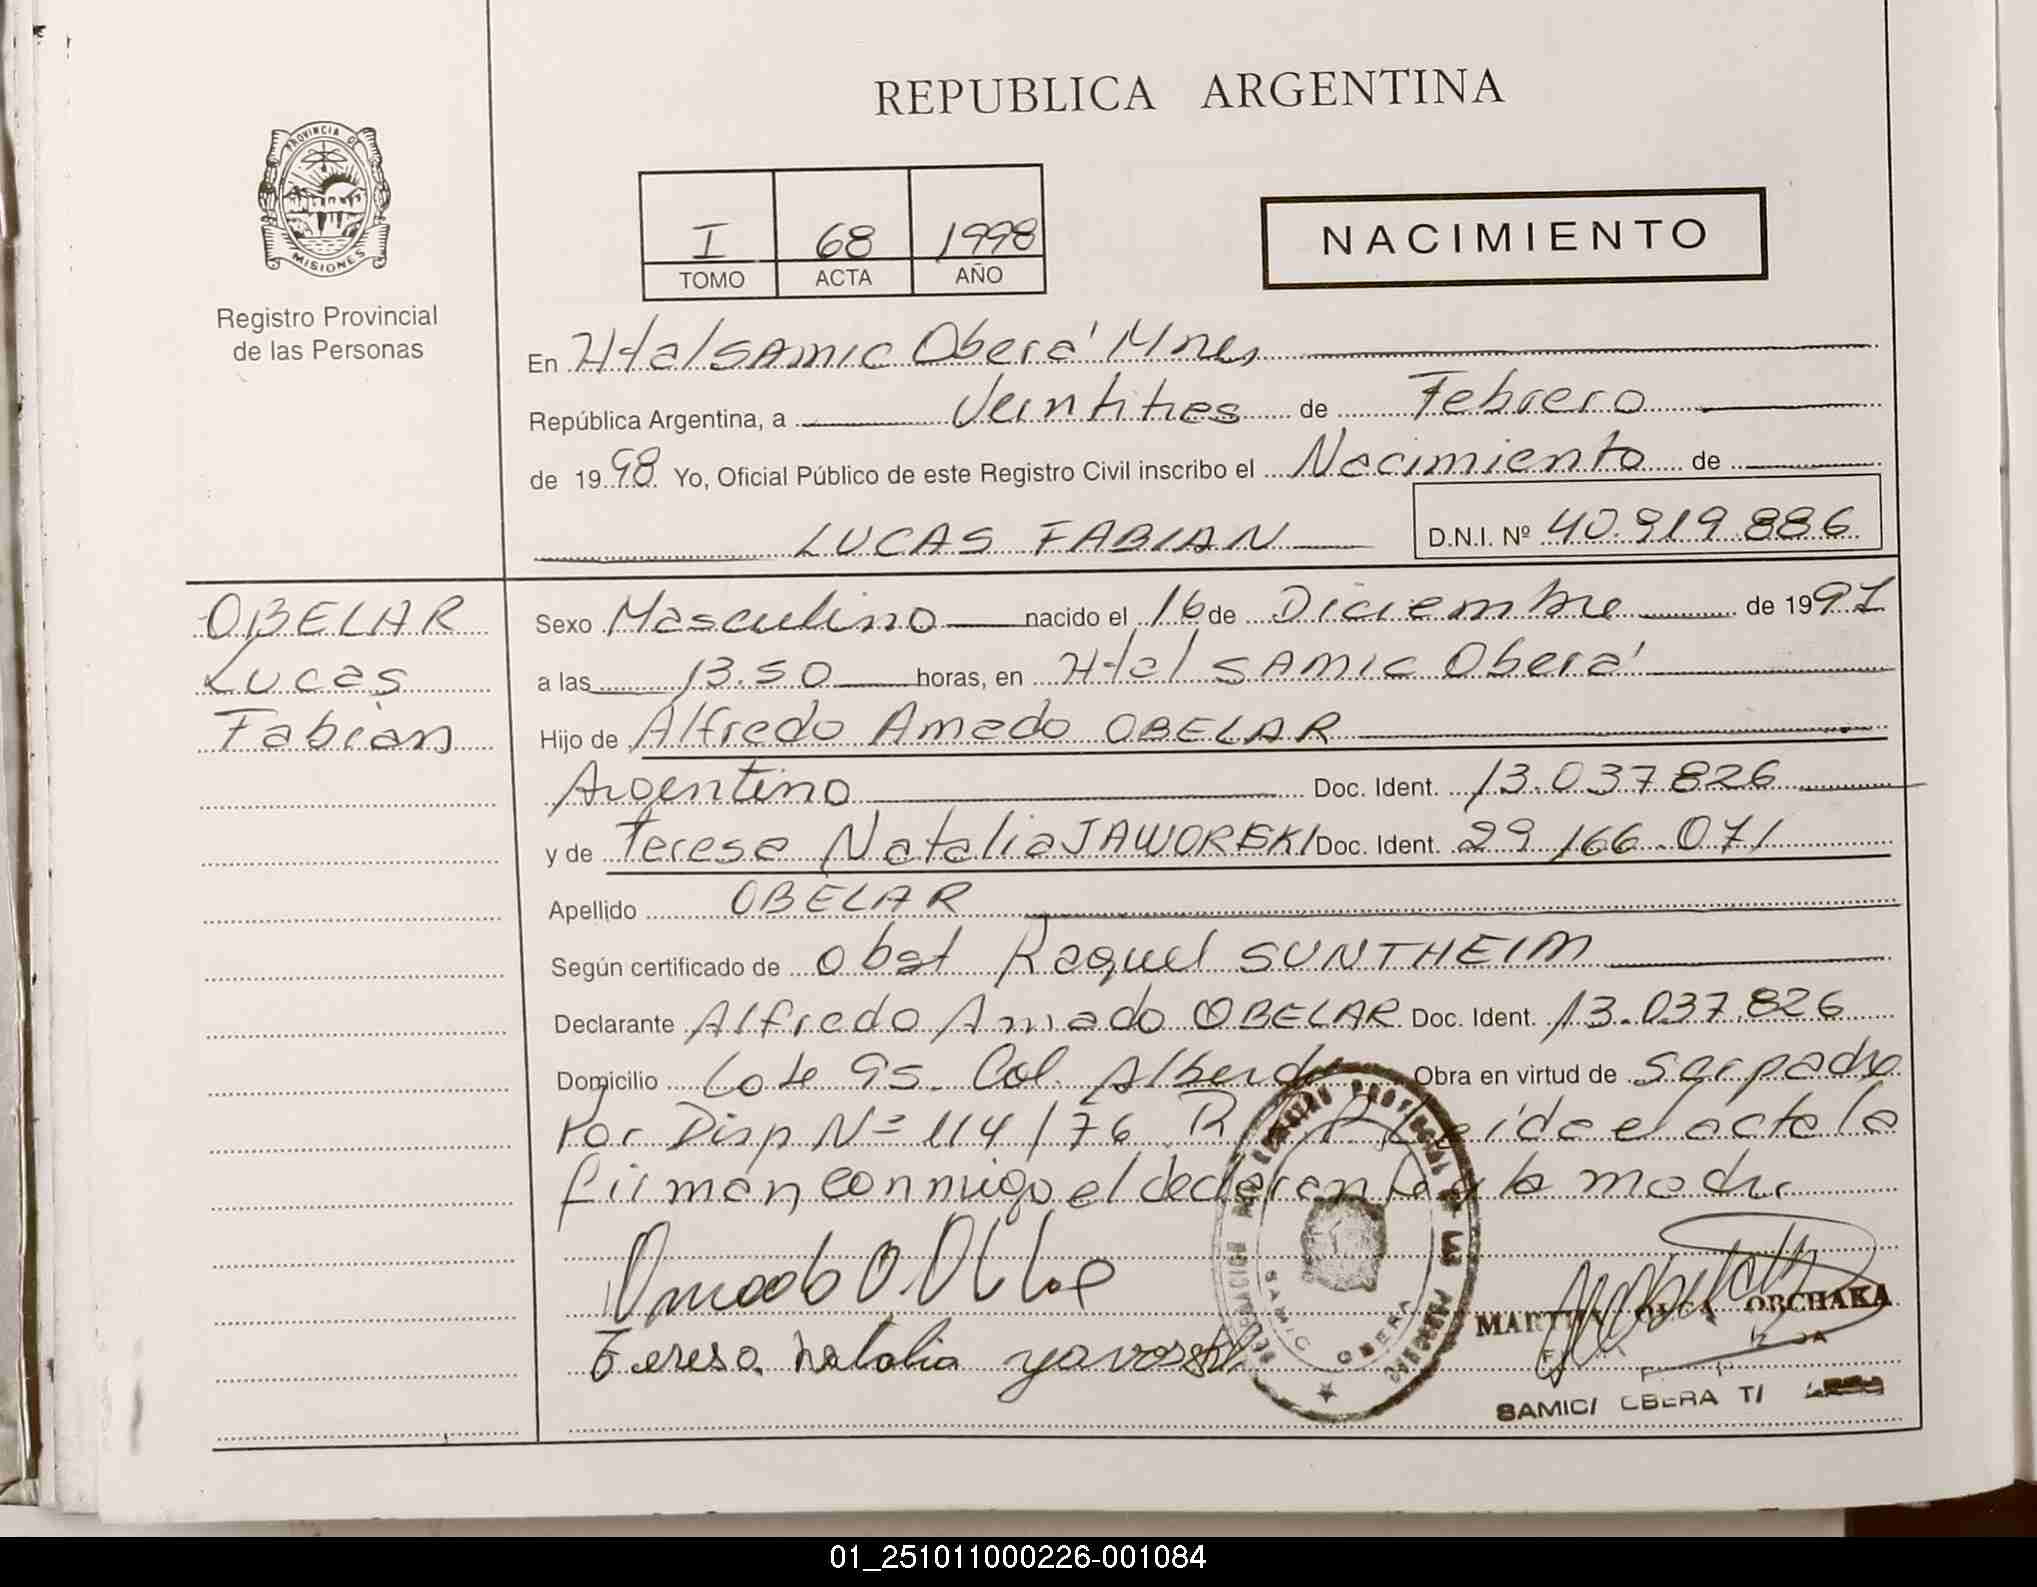 REPUBLICA ARGENTINA
PROVINCIA DE
MISIONES
Registro Provincial
de las Personas
I 68 1998
TOMO ACTA AÑO
NACIMIENTO
En Htal SAMIC Oberá Mnes
República Argentina, a Veintitres de Febrero
de 1998 Yo, Oficial Público de este Registro Civil inscribo el Nacimiento de
LUCAS FABIAN D.N.I. Nº 40.919.886
OBELAR
Lucas
Fabian
Sexo Masculino nacido el 16 de Diciembre de 1997
a las 13.50 horas, en Htal SAMIC Oberá
Hijo de Alfredo Amado OBELAR
Argentino Doc. Ident. 13.037.826
y de Teresa Natalia JAWORSKI Doc. Ident. 29.166.071
Apellido OBELAR
Según certificado de Obst Raquel SUNTHEIM
Declarante Alfredo Amado OBELAR Doc. Ident. 13.037.826
Domicilio Lote 95. Col. Alberdi Obra en virtud de ser padre
Por Disp Nº 114/76 R Leida el acta la
firman conmigo el declarante y la madre
Teresa natalia
SAMIC OBERA
OBCHAKA
SAMIC/ OBERA
01_251011000226-001084